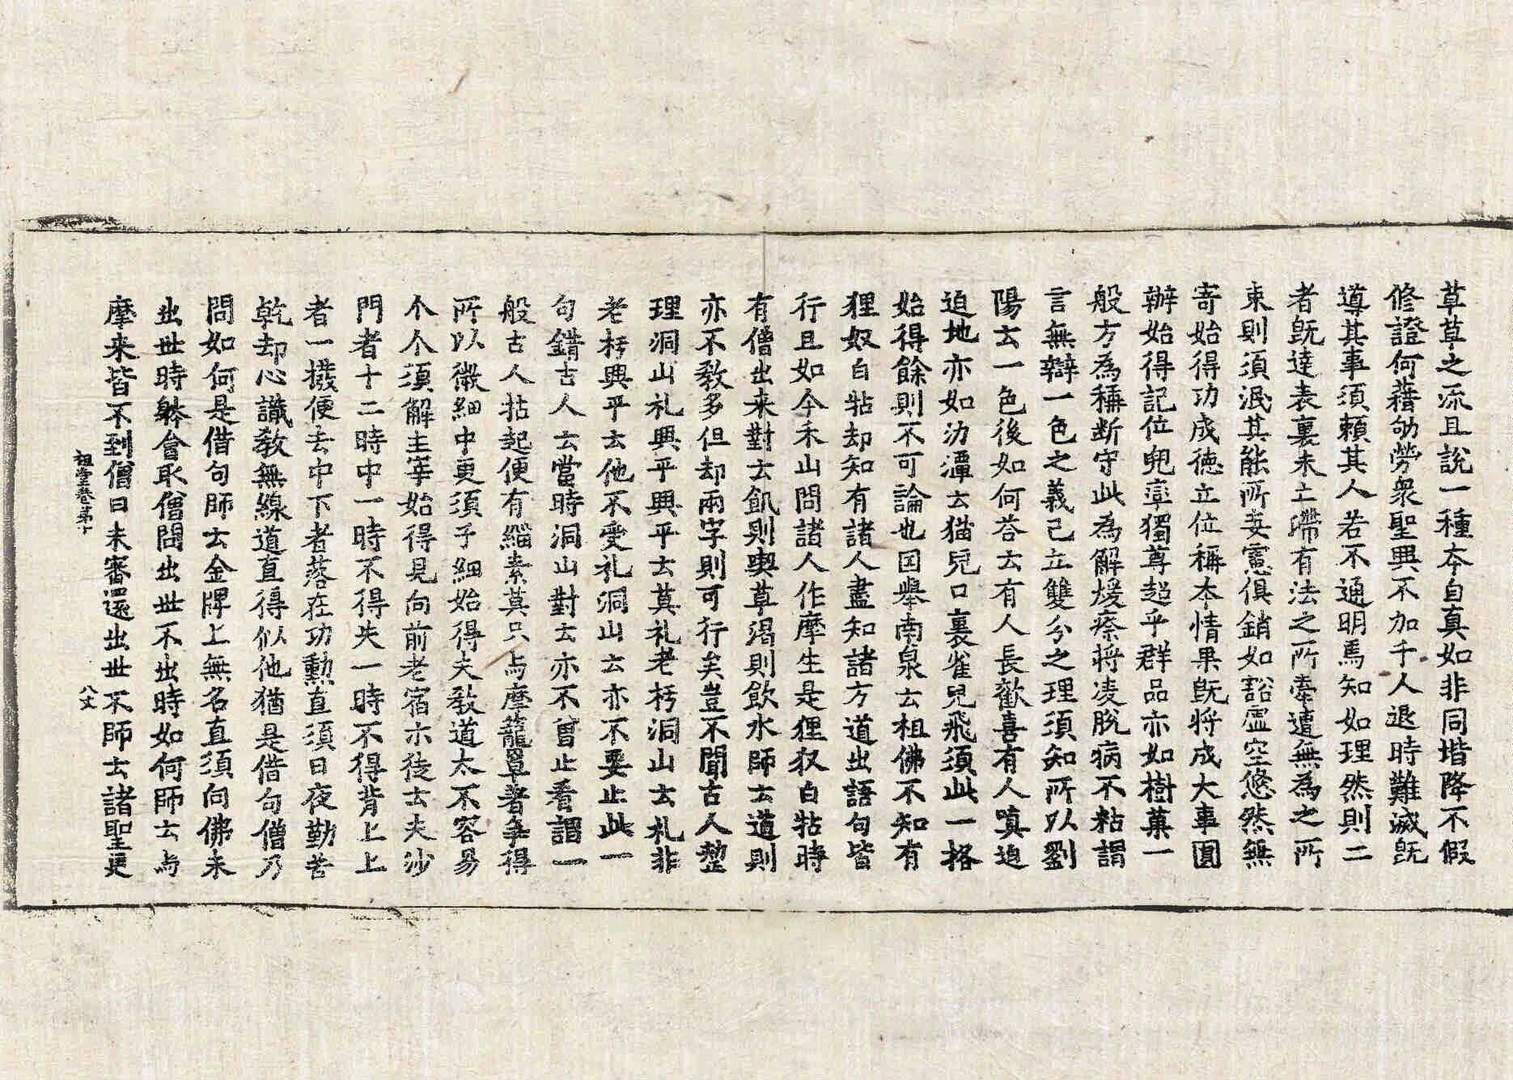 草草之流且說一種夲自真如非同堦降不假
修證何藉劬勞衆聖興不加千人退時難減旣
導其事須頼其人若不通明焉知如理然則二
者旣達表裏未立滯有法之所牽遭無為之所
束則須泯其能所妄憲俱銷如豁虛空悠然無
寄始得功成德立位稱夲情果旣將成大事圓
辦始得記位兜率獨尊超乎群品亦如樹菓一
般方為稱断守此為解煖瘵將凌脫病不粘謂
言無辯一色之義己立雙分之理須知所以劉
陽去一色後如何荅去有人長歡喜有人嗔迫
迫地亦如泐潭云猫兒口裏雀兒飛須此一格
始得餘則不可論也因舉南泉云祖佛不知有
狸奴白牯却知有諸人盡知諸方道出語句皆
行且如今禾山問諸人作摩生是狸奴白牯時
有僧出来對云飢則喫草渴則飲水師云道則
亦不教多但却兩字則可行矣豈不聞古人整
理洞山礼興平興平云莫礼老朽洞山云礼非
老朽興平云他不受礼洞山云亦不要止此一
句錯古人云當時洞山對云亦不曾止看謂一
般古人拈起便有緇素莫只与摩籠罩著争得
所以微細中更須子細始得夫教道太不容易
个个須解主宰始得見向前老宿示徒云夫沙
門者十二時中一時不得失一時不得背上上
者一撥便去中下者落在功勳直須日夜勤苦
乾却心識教無線道直得似他猶是借句僧乃
問如何是借句師云金牌上無名直須向佛未
出世時躰會取僧問出世不出時如何師云与
摩来皆不到僧曰未審還出世不師云諸聖更
祖堂卷第十
八丈